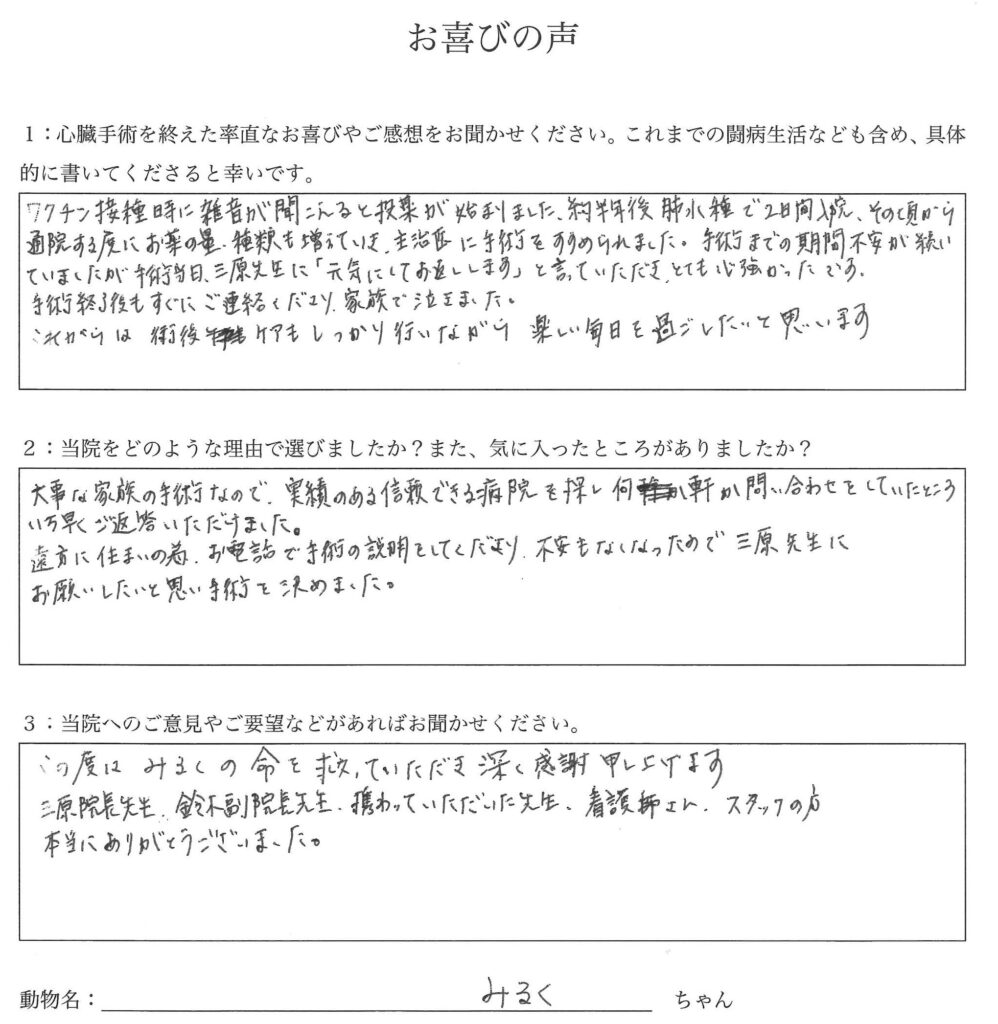 お喜びの声
1：心臓手術を終えた率直なお喜びやご感想をお聞かせください。これまでの闘病生活なども含め、具体
的に書いてくださると幸いです。
ワクチン接種時に雑音が聞こえると投薬が始まりました、約半年後 肺水種で2日間入院、その頃から
通院する度にお薬の量、種類も増えていき、主治医に手術をすすめられました。手術までの期間不安が続い
ていましたが手術当日、三原先生に「元気にしてお返しします」と言っていただき、とても心強かったです。
手術終了後もすぐにご連絡くださり、家族で泣きました。
これからは 術後 ケアもしっかり行いながら 楽しい毎日を過ごしたいと思います
2：当院をどのような理由で選びましたか？また、気に入ったところがありましたか？
大事な家族の手術なので、実績のある信頼できる病院を探し 何軒か問い合わせをしていたところ
いち早くご返答いただけました。
遠方に住まいの為、お電話で手術の説明をしてくださり、不安もなくなったので 三原先生に
お願いしたいと思い手術を決めました。
3：当院へのご意見やご要望などがあればお聞かせください。
この度は みるくの命を救っていただき深く感謝申し上げます
三原院長先生、鈴木副院長先生、携わっていただいた先生、看護師さん、スタッフの方
本当にありがとうございました。
動物名： みるく ちゃん